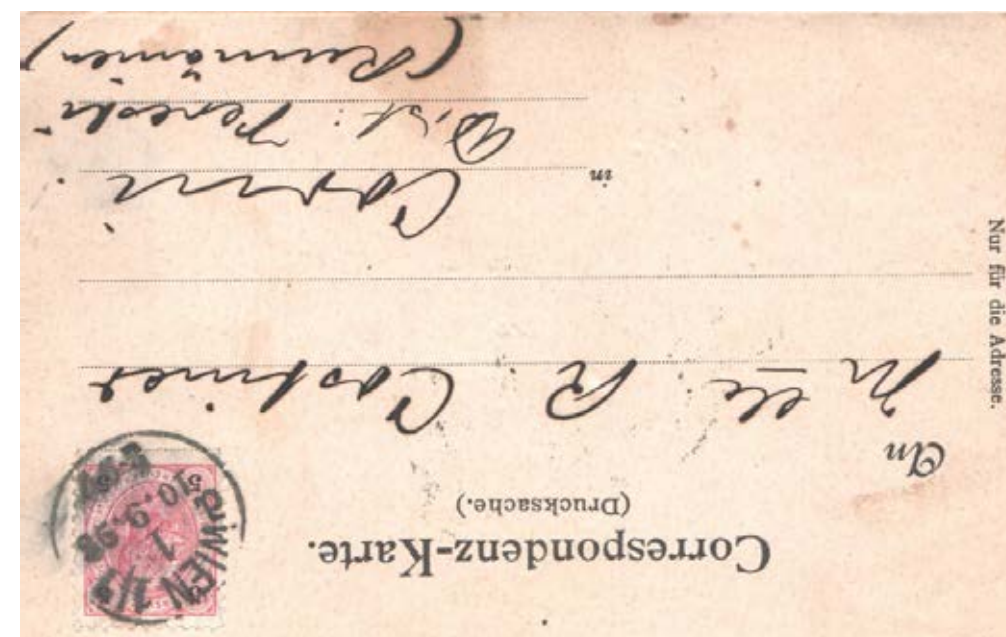 Correspondenz-Karte.
(Drucksache.)
WIEN 1/1
1
10.9.98
5 5
An
Mlle R. Costiner
in
Dist:
(Rumänien)
Nur für die Adresse.